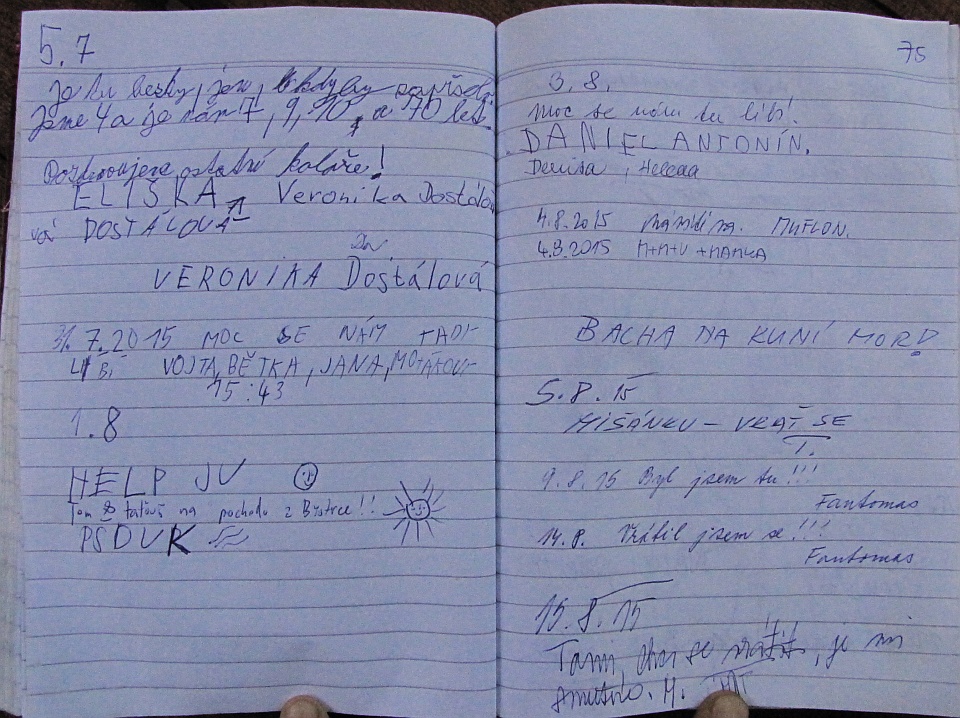 5.7
Je tu hezky, jen, kdyby
Jsme 4 a je nám 7, 9, 10, a 70 let.
Pozdravujeme ostatní koláře!
ELIŠKA Veronika Dostálo
vá DOSTÁLOVÁ
VERONIKA Dostálová
31.7.2015 MOC SE NÁM TADY
LÍBÍ VOJTA, BĚTKA, JANA,
15:43
1.8
HELP JU
Tom tatínš na pochodu z Bystrce!!
PSDUK
75
3.8.
Moc se nám tu líbí!
DANIEL ANTONÍN.
Denisa, Helena
4.8.2015 MUFLON.
4.8.2015 M+M+V+MAMKA
BACHA NA KUNÍ MOR!
5.8.15
MIŠÁNKU – VRAŤ SE
T.
9.8.15 Byl jsem tu!!!
Fantomas
14.8. Vrátil jsem se!!!
Fantomas
15.8.15
Tami, chci se vrátit, je mi
smutno. M.